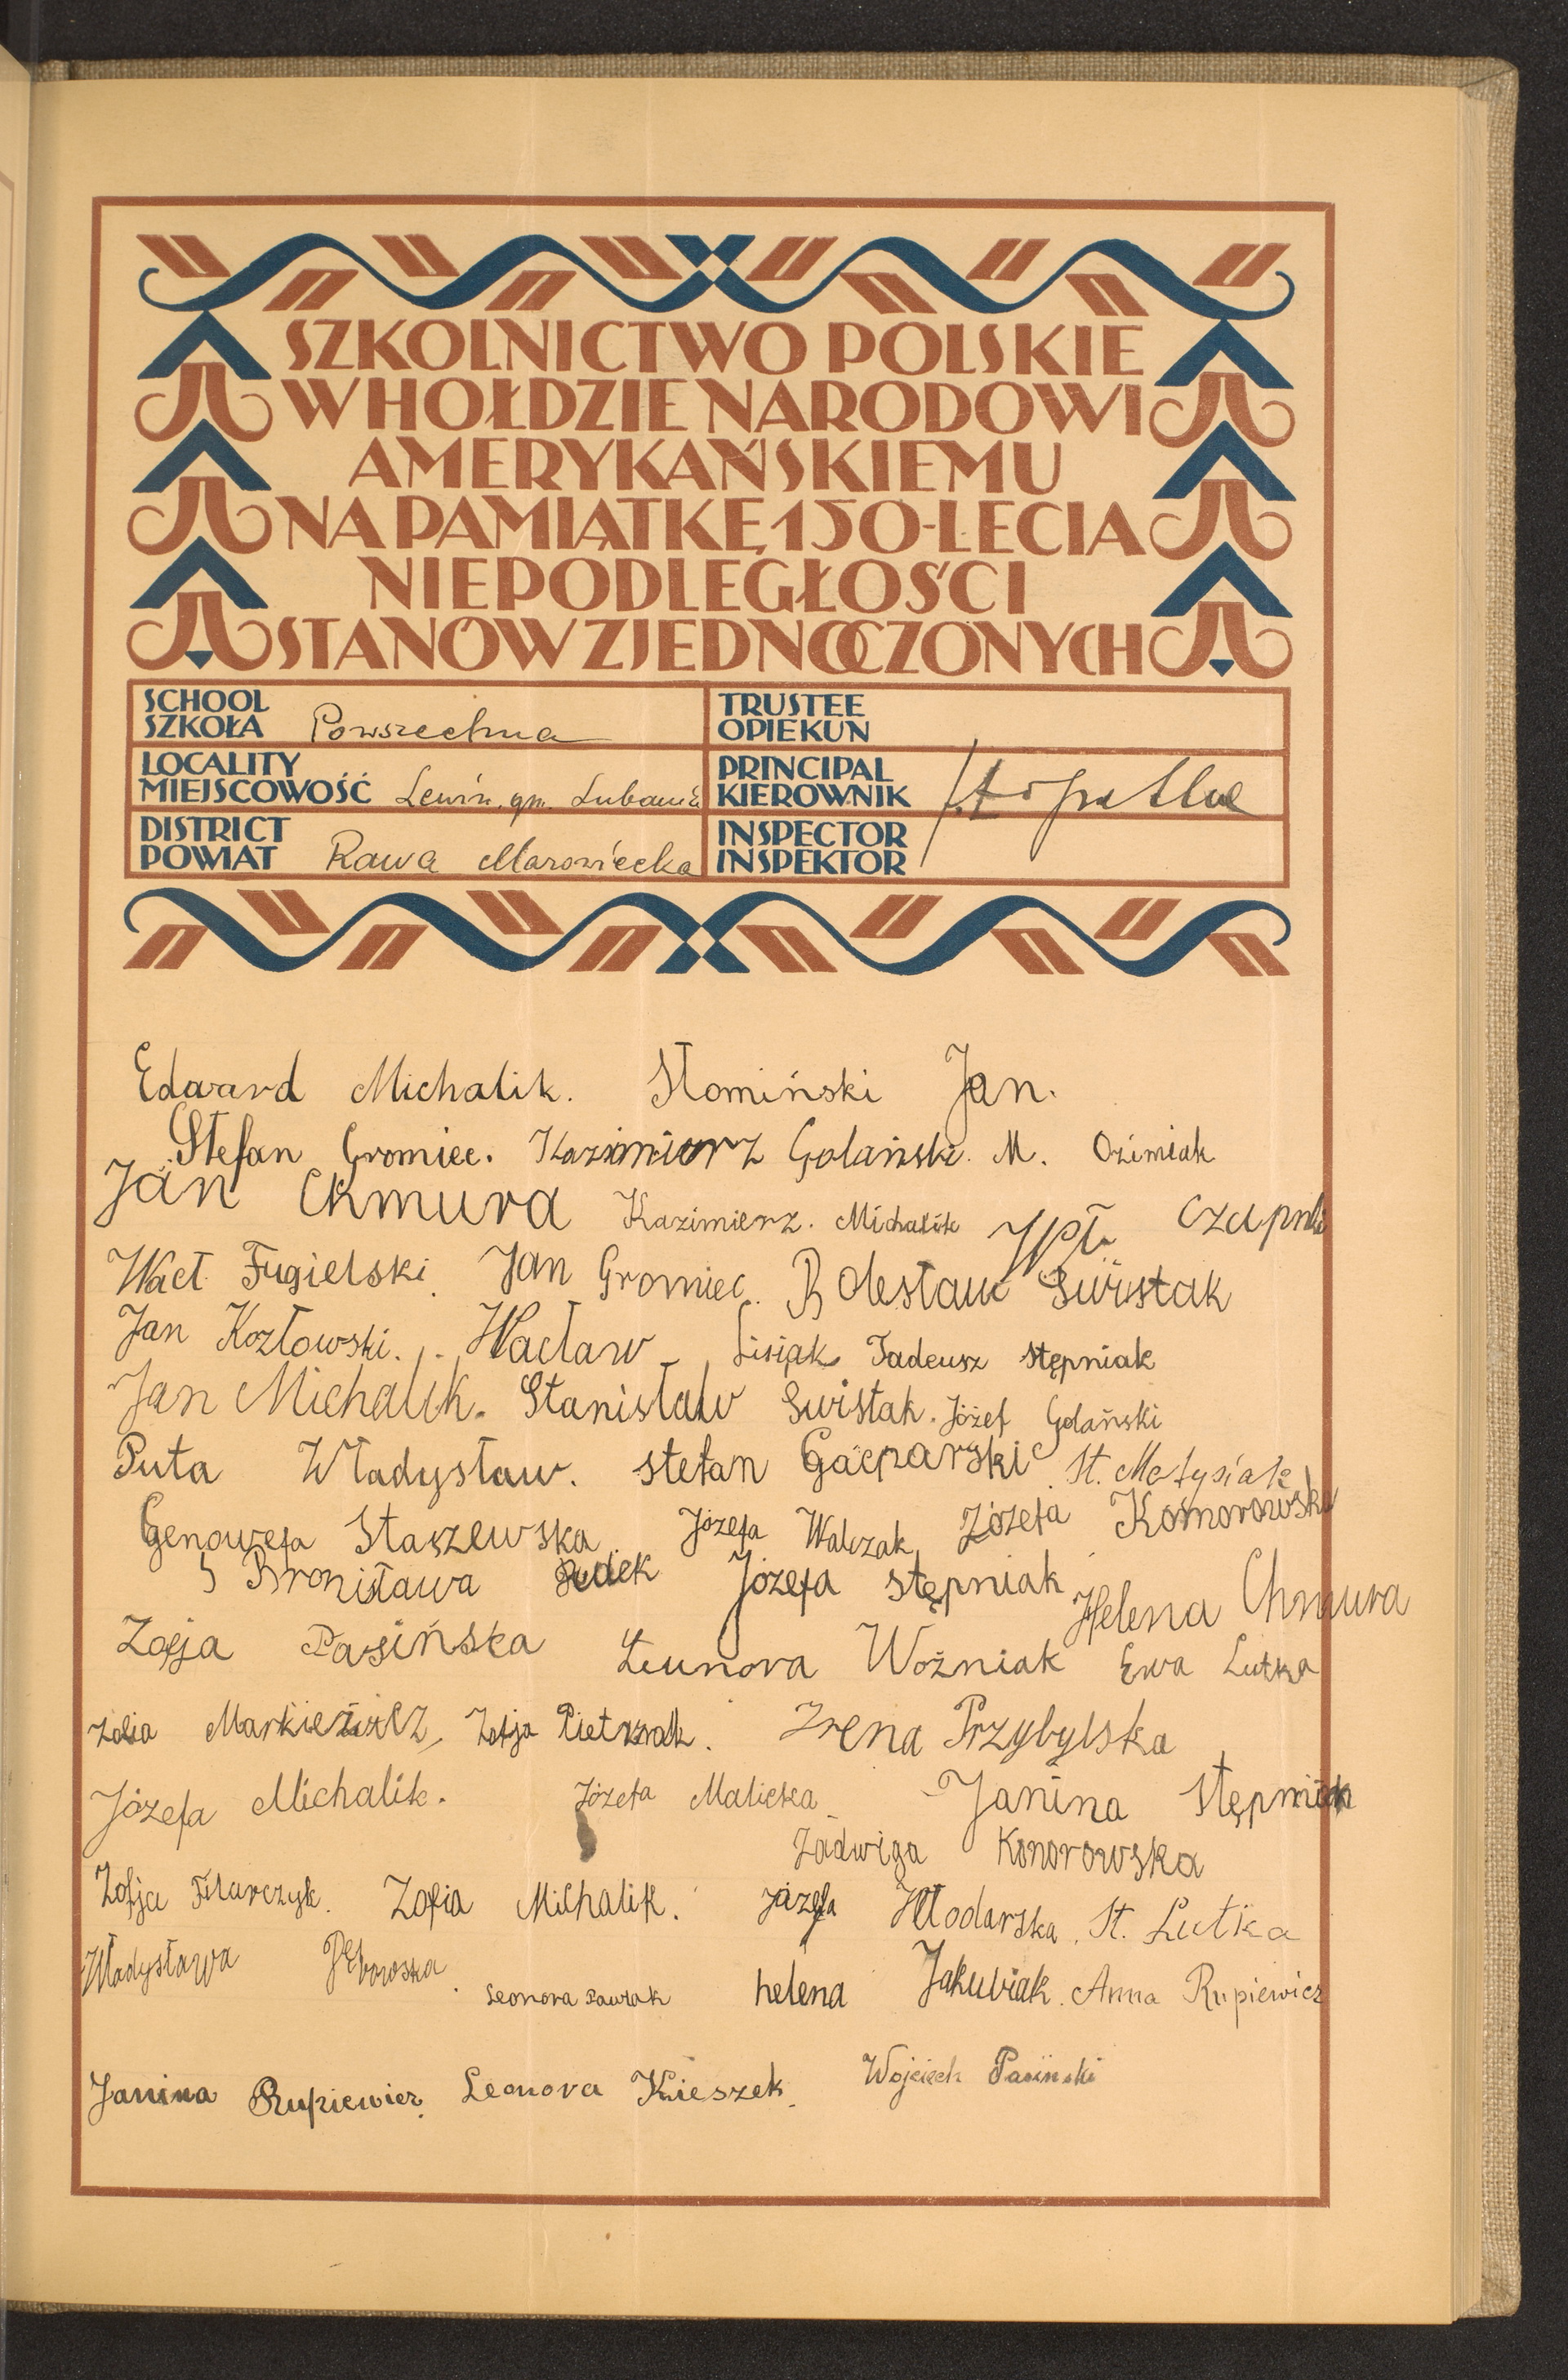 SZKOLNICTWO POLSKIE
W HOŁDZIE NARODOWI
AMERYKAŃSKIEMU
NA PAMIĄTKĘ 150-LECIA
NIEPODLEGŁOŚCI
STANÓW ZJEDNOCZONYCH
SCHOOL SZKOŁA Powszechna
TRUSTEE OPIEKUN
LOCALITY MIEJSCOWOŚĆ Lewin, gm. Lubania
PRINCIPAL KIEROWNIK
DISTRICT POWIAT Rawa Mazowiecka
INSPECTOR INSPEKTOR
Edward Michalik. Słomiński Jan.
Stefan Gromiec. Kazimierz Golański. M. Ozimiak
Jan Chmura Kazimierz. Michalik Wł.
Wacł. Fugielski. Jan Gromiec. Bolesław Swistak
Jan Kozłowski. Wacław Lisiak Tadeusz Stępniak
Jan Michalik. Stanisław Swistak. Józef Golański
Puta Władysław. Stefan Gacparski St. Matysiak
Genowefa Staszewska Józefa Walczak Józefa Komorowska
Bronisława Józefa Stępniak Helena Chmura
Zofja Pasińska Leunora Woźniak Ewa Lutka
Markiewicz, Zofja Pietrzak. Irena Przybylska
Józefa Michalik. Józefa Malicka Janina Stępniak
Jadwiga Komorowska
Zofja Filarczyk. Zofia Michalik. Józefa Włodarska, St. Lutka
Władysława Leonora Pawlak helena Jakubiak. Anna Rupiewicz
Janina Rupiewicz. Leonora Kieszek. Wojciech Pasiński